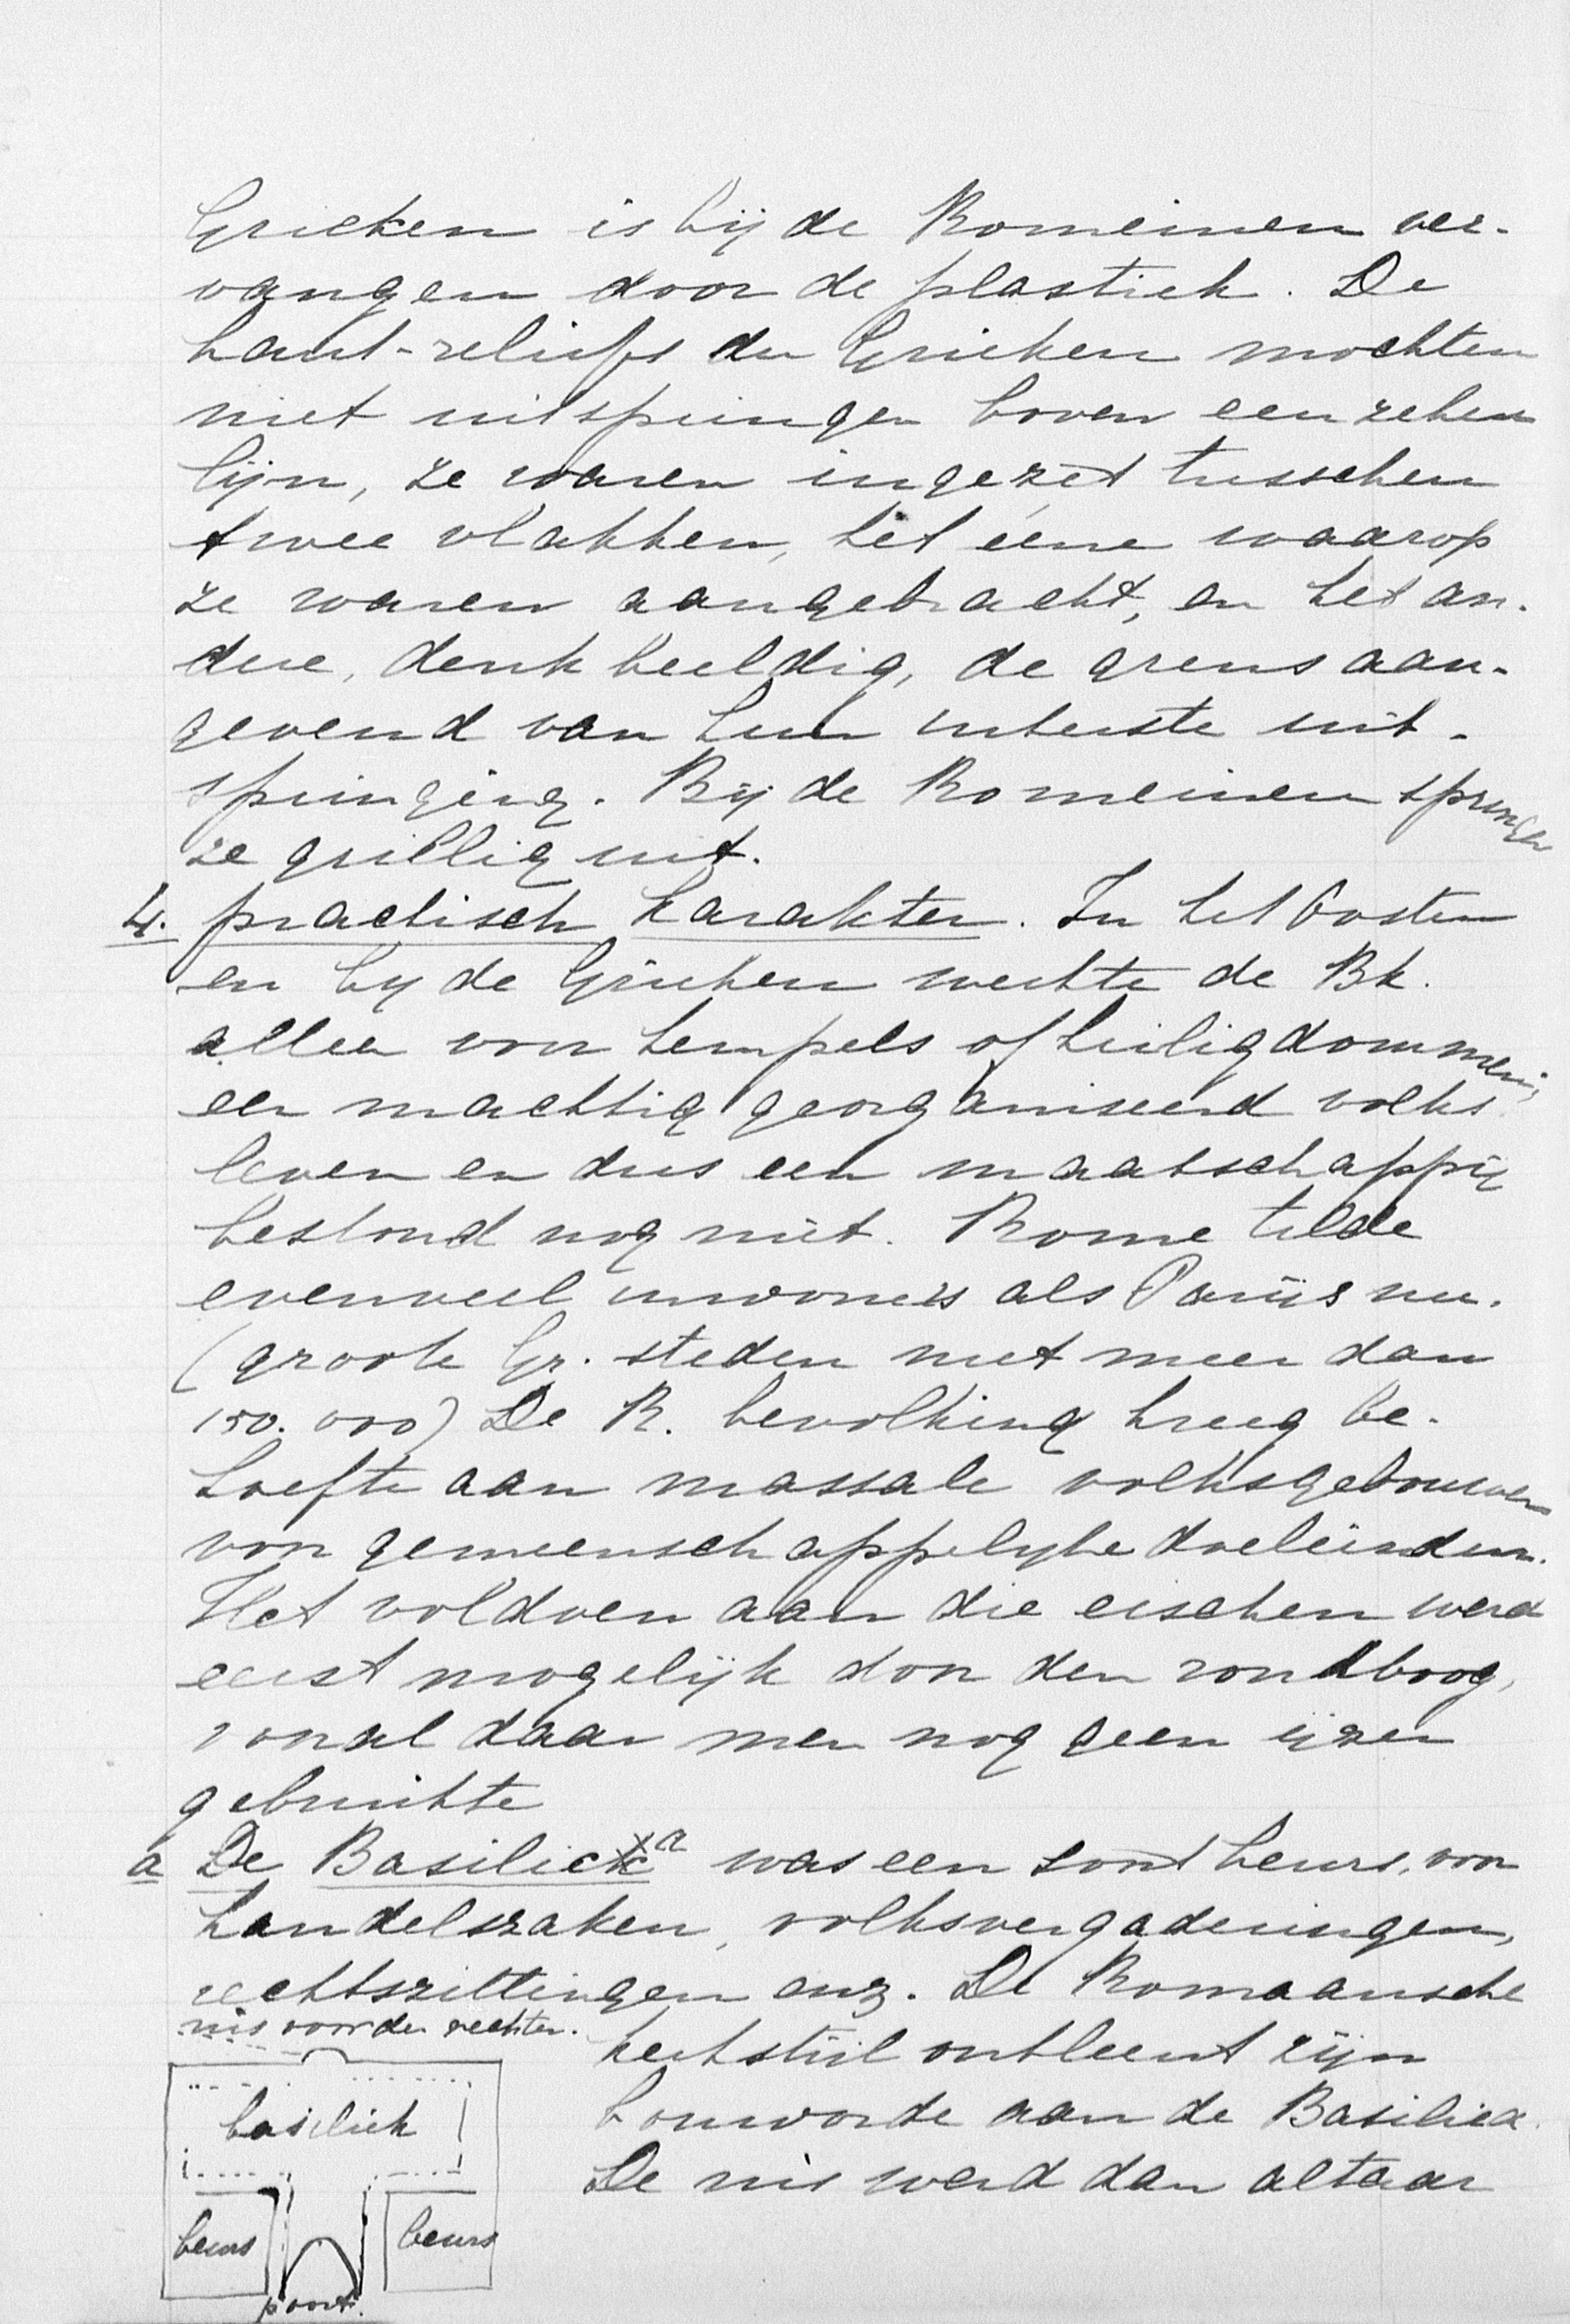 Grieken is bij de Romeinen ver-
vangen door de plastiek. De
haut-reliefs der Grieken mochten
niet uitspringen boven een zekere
lijn, ze waren ingezet tusschen
twee vlakken, het ééne waarop
ze waren aangebracht, en het an-
dere, denkbeeldig, de grens aan-
gevend van hun uiterste uit-
springing. Bij de Romeinen springen
ze grillig uit.
4. practisch karakter. In het Oosten
en bij de Grieken werkte de Bk.
alleen voor tempels of heiligdommen;
een machtig georganiseerd volks
leven en dus een maatschappij
bestond nog niet. Rome telde
evenveel inwoners als Parijs nu.
(groote Gr. steden niet meer dan
150.000) De R. bevolking kreeg be-
hoefte aan massale volksgebouwen
voor gemeenschappelijke doeleinden.
Het voldoen aan die eischen werd
eerst mogelijk door den rondboog,
vooral daar men nog geen ijzer
gebruikte
a De Basilica was een soort beurs, voor
handelszaken, volksvergaderingen,
rechtszittingen enz. De Romaansche
nis voor den rechter.
kerkstijl ontleent zijn
bouworde aan de Basilica.
De nis werd dan altaar
basiliek
beurs
beurs
poort.